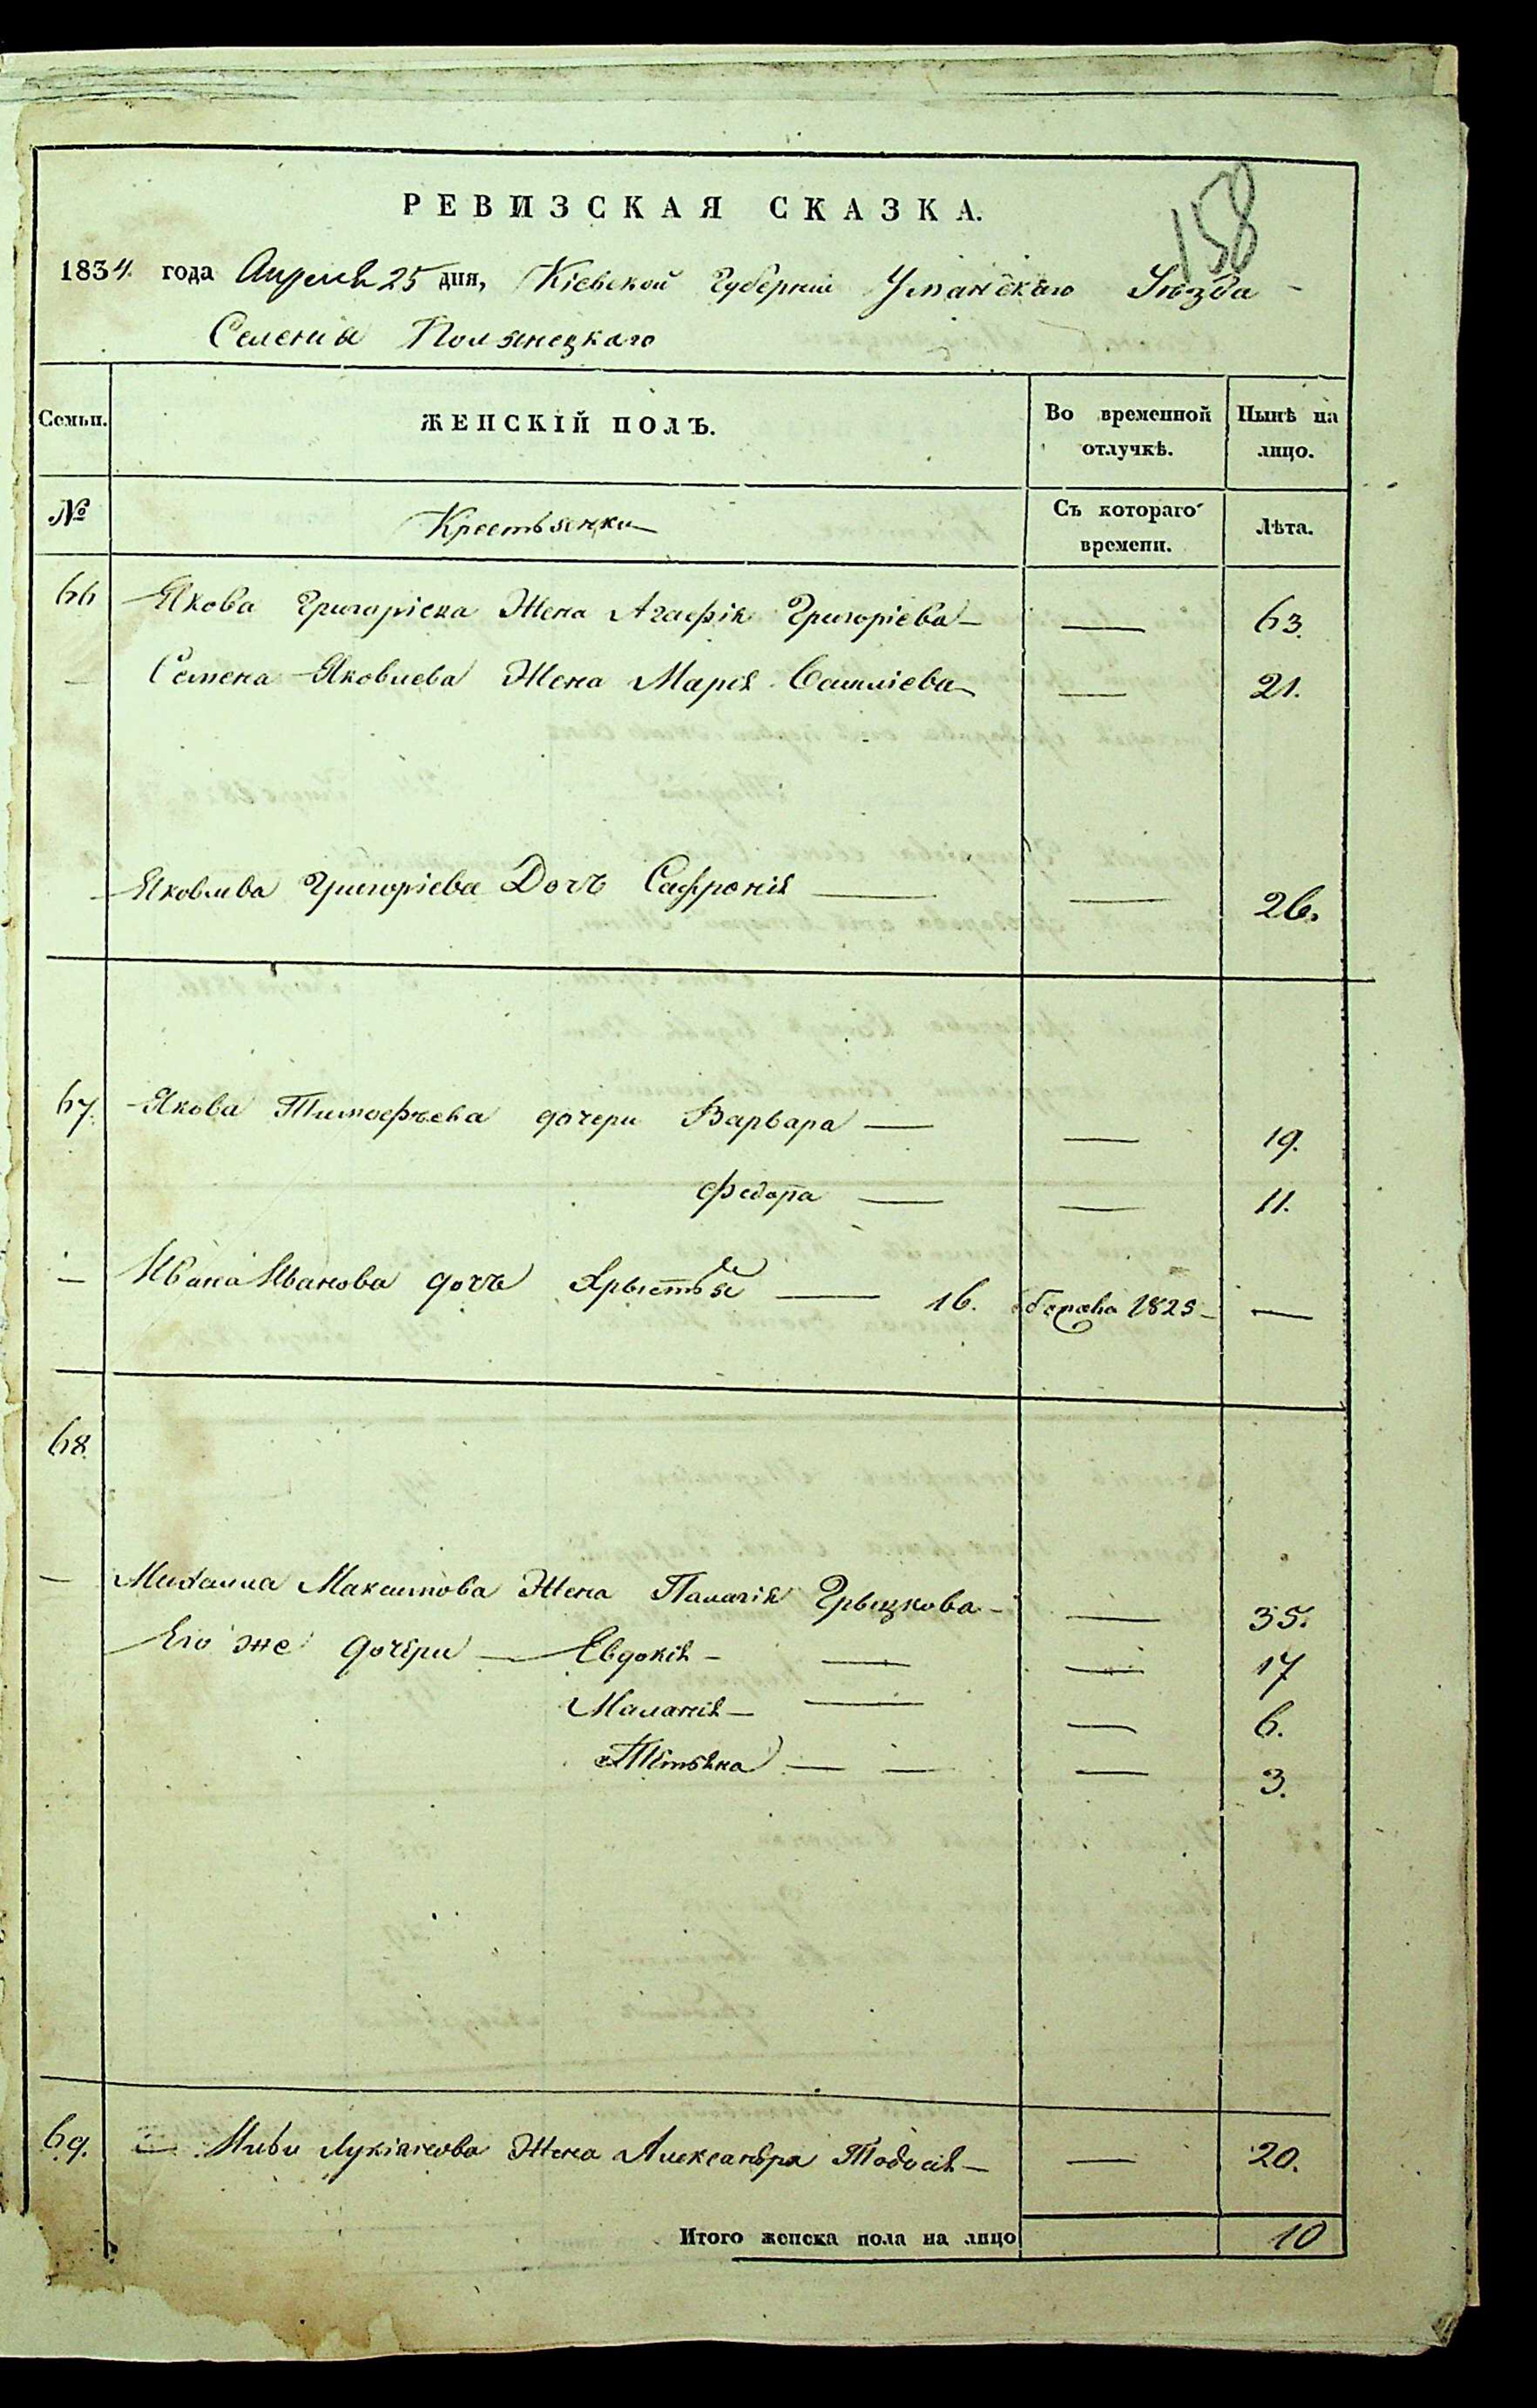 158
РЕВИЗСКАЯ СКАЗКА.
1834. года Апреля 25 дня, Кіевской Губерніи Уманскаго Уѣзда
Селенія Полянецкаго
Семьи. ЖЕНСКІЙ ПОЛЪ. Во временной отлучкѣ. Нынѣ на лицо.
№ Крестьянки Съ котораго времени. Лѣта.
66 Якова Григоріева Жена Агафія Григоріева — — 63.
— Семена Яковлева Жена Марія Василіева — — 21.
— Яковлева Григоріева Дочь Сафронія — — 26.
67. Якова Тимофѣева дочери Варвара — — 19.
Федора — — 11.
— Ивана Иванова дочь Хрыстья — 16. 1825 — —
68.
— Михаила Максимова Жена Палагія Грыцкова — — 35.
Его же дочери — Евдокія — — — 17
Маланія — — — 6.
Тетьяна — — — 3.
69. — Лукіанова Жена Александра Тодосія — — 20.
Итого женска пола на лицо 10